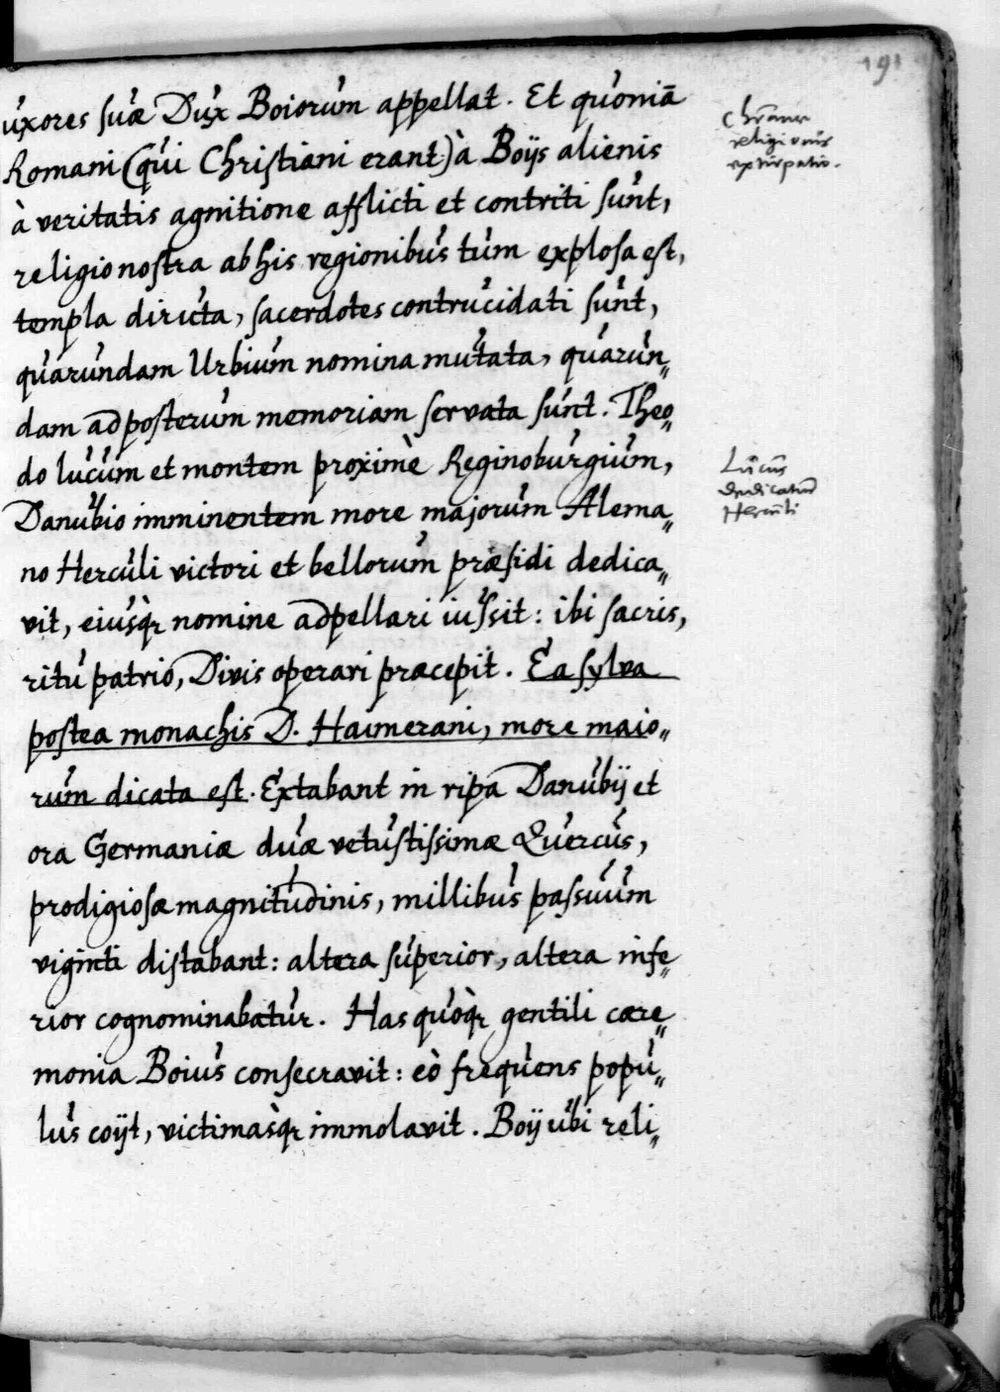 191
uxores suæ Dux Boiorum appellat. Et quoniā
Romani (qui Christiani erant) à Boÿs alienis
à veritatis agnitione afflicti et contriti sunt,
religio nostra ab his regionibus tum explosa est,
templa diruta, sacerdotes contrucidati sunt,
quarundam Urbium nomina mutata, quarun„
dam ad posterum memoriam servata sunt. Theo„
do lucum et montem proximè Reginoburgium,
Danubio imminentem more majorum Alema„
no Herculi victori et bellorum præsidi dedica„
vit, eiusq̀ꝫ nomine adpellari iussit: ibi sacris,
ritu patrio, Divis operari præcepit. Ea sylva
postea monachis D. Haimerani, more maio„
rum dicata est. Extabant in ripa Danubÿ et
ora Germaniæ duæ vetustissimæ Quercus,
prodigiosæ magnitudinis, millibus passuum
viginti distabant: altera superior, altera infe„
rior cognominabatur. Has quoq̀ꝫ gentili cære„
monia Boius consecravit: eò frequens popu„
lus coÿt, victimasq̀ꝫ immolavit. Boÿ ubi reli„
Chrīanæ
religionis
extirpatio.
Lucus
dedicatus
Herculi